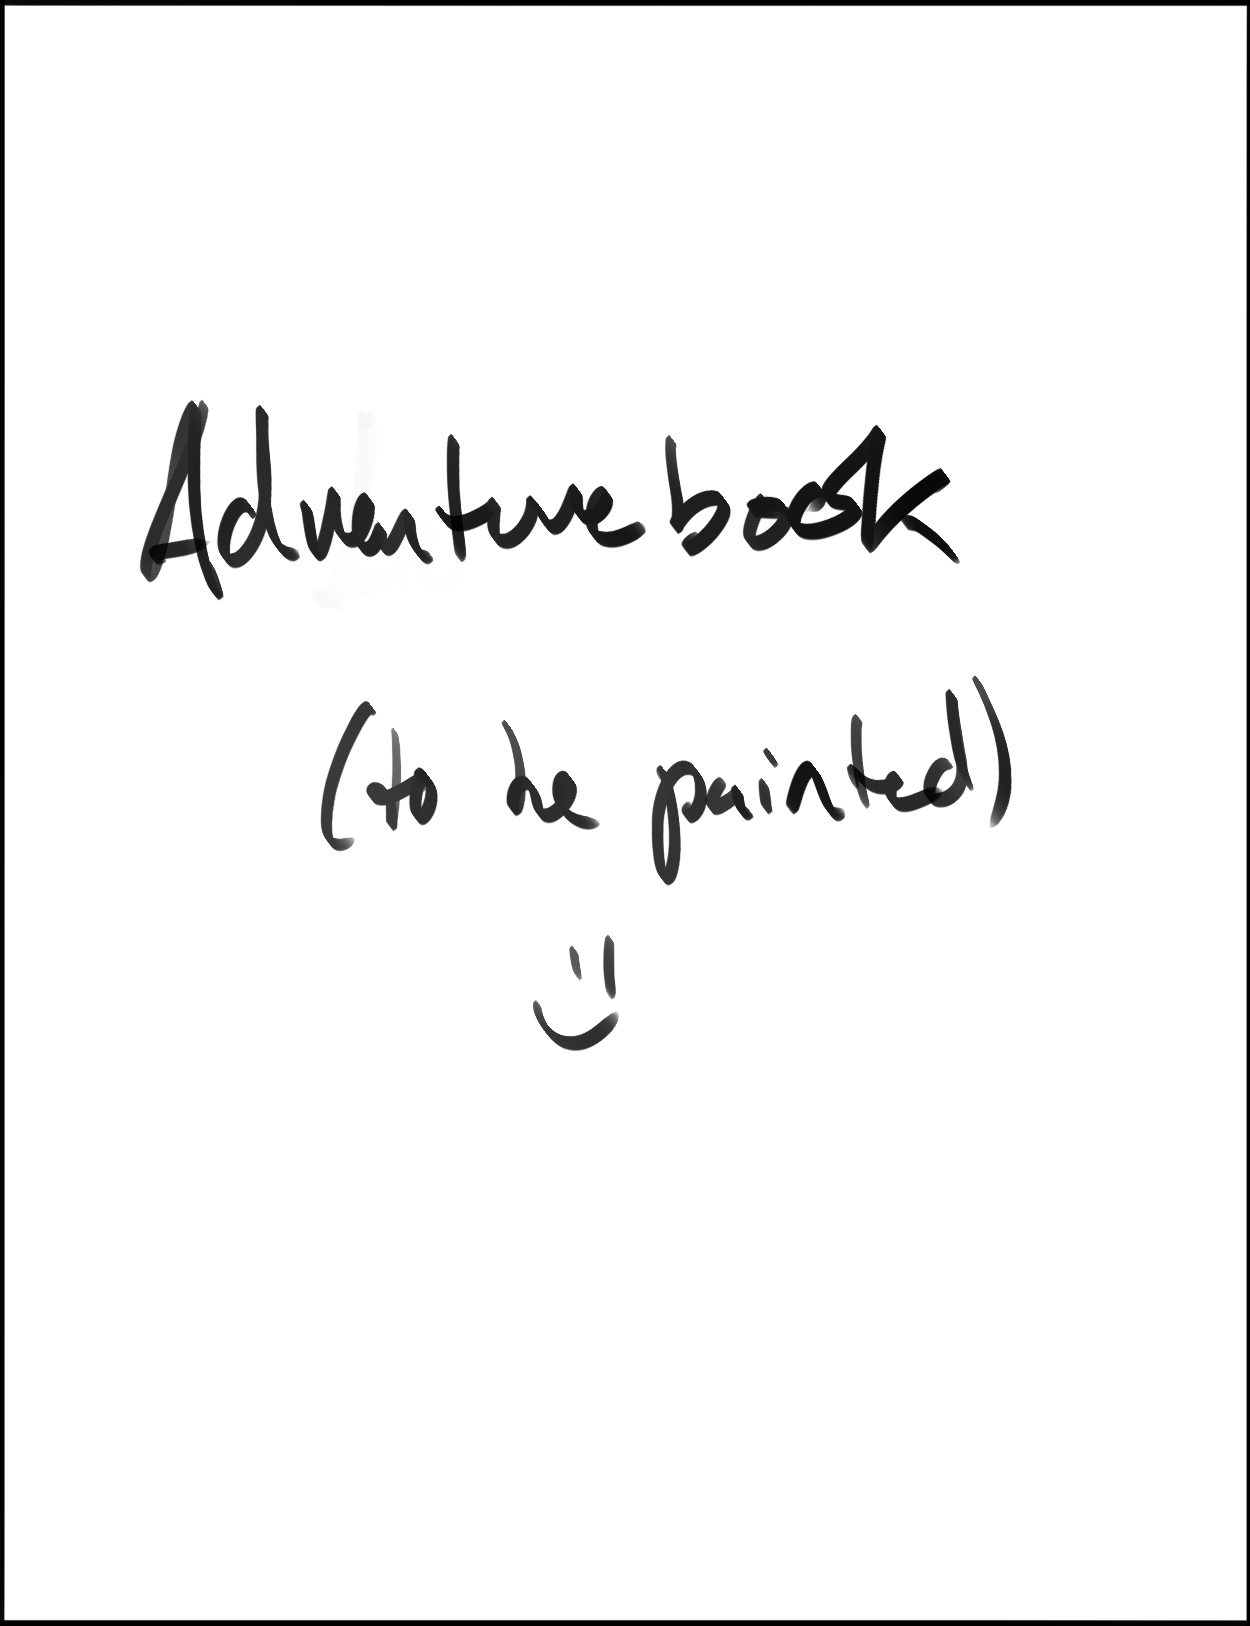 Adventure book
(to be painted)
:)